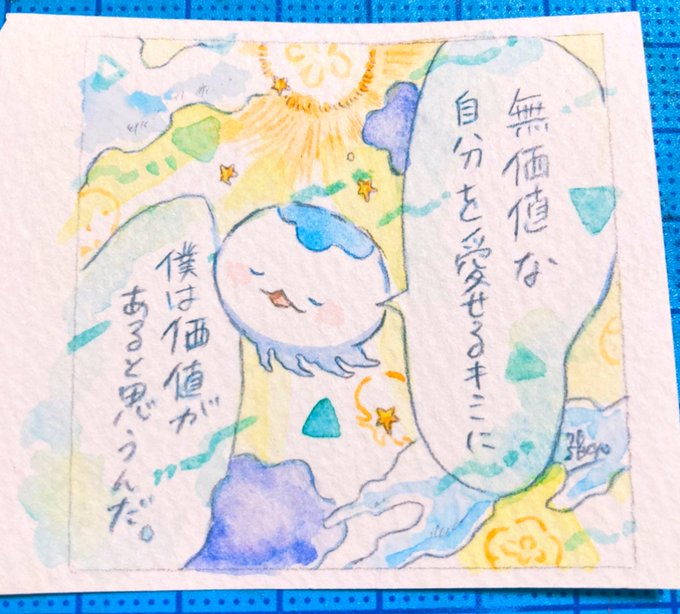 無価値な
自分を愛せるキミに
僕は価値が
あると思うんだ。